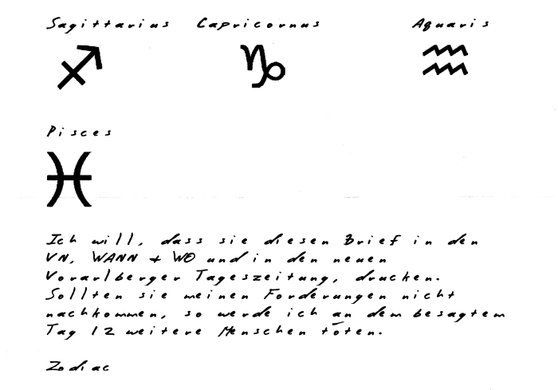 Sagittarius Capricornus Aquaris
♐ ♑ ♒
Pisces
♓
Ich will, dass sie diesen Brief in den
VN, WANN + WO und in den neuen
Vorarlberger Tageszeitung, drucken.
Sollten sie meinen Forderungen nicht
nachkommen, so werde ich an dem besagtem
Tag 12 weitere Menschen töten.
Zodiac